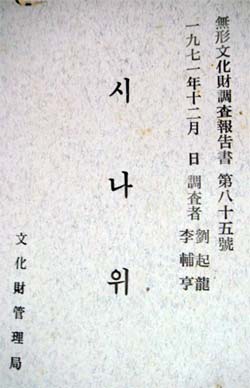 無形文化財調査報告書 第八十五號
一九七一年十二月 日 調査者 劉起龍
李輔亨
시나위
文化財管理局